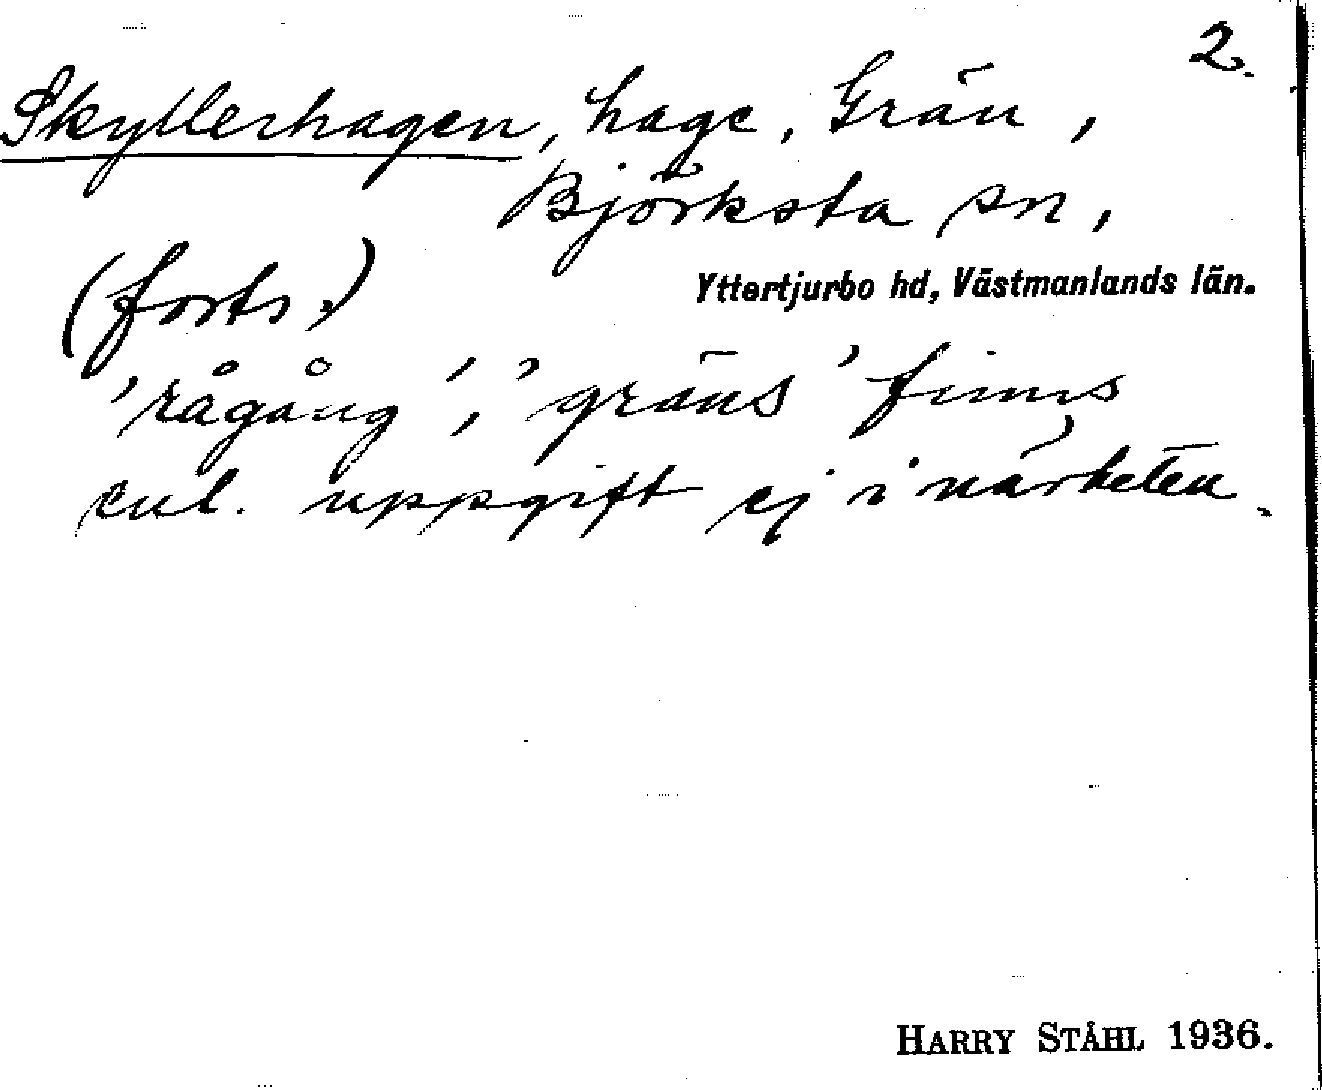 2.
Skyllerhagen, hage, Grän,
Björksta sn,
(forts.)
Yttertjurbo hd, Västmanlands län.
'rågång', 'gräns' finns
enl. uppgift ej i närheten.
HARRY STÅHL 1936.